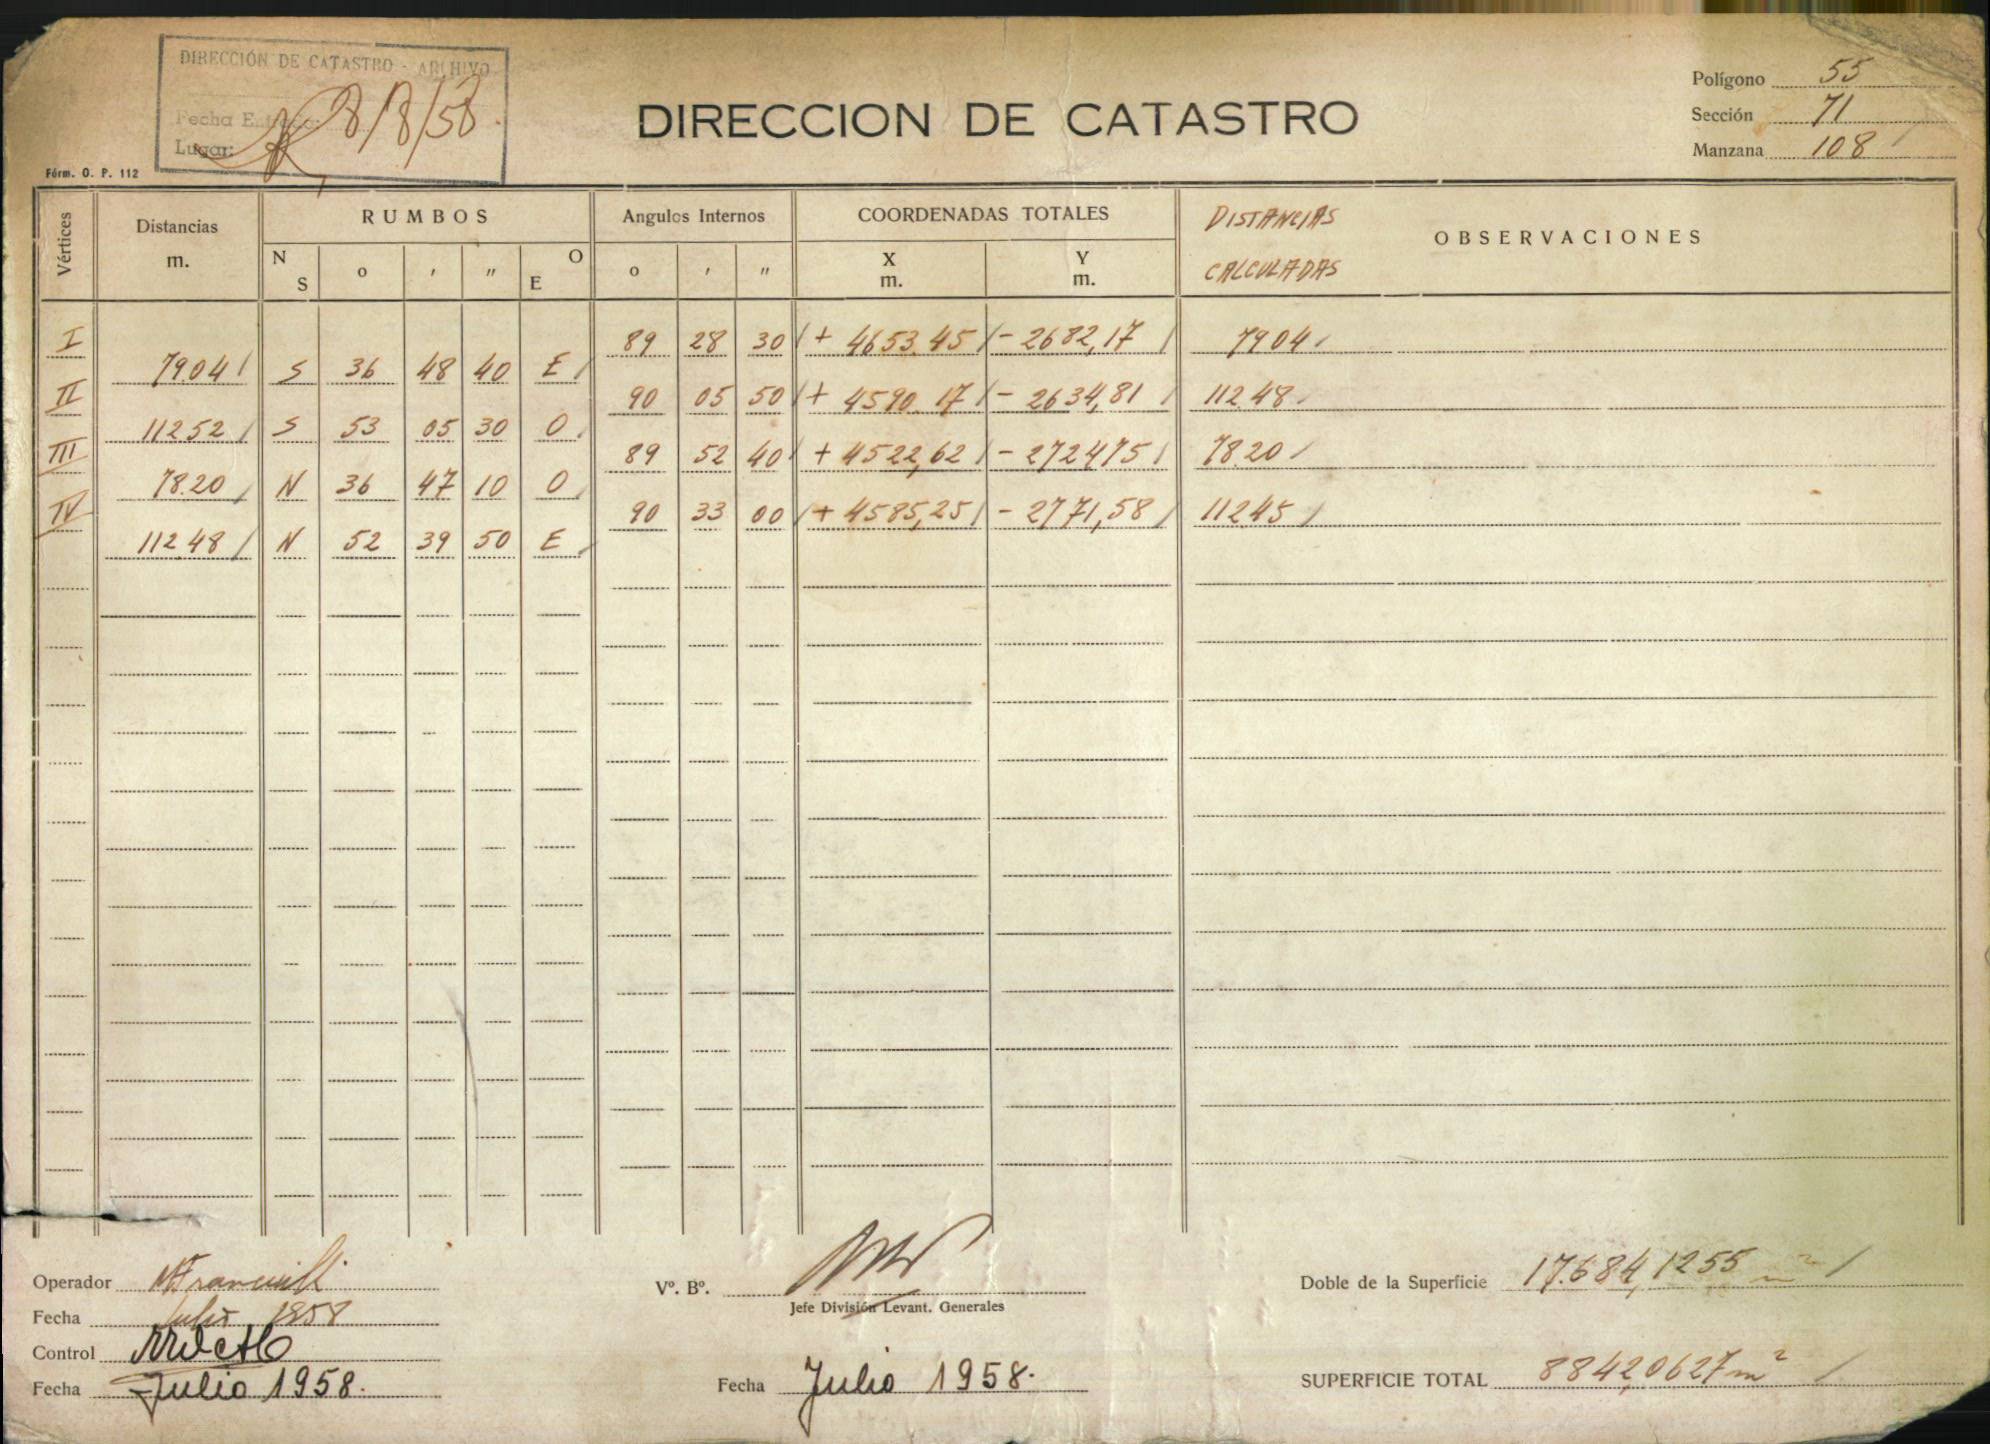 DIRECCIÓN DE CATASTRO - ARCHIVO
Fecha Entrada: 8/8/58.
Lugar:
Fórm. O. P. 112
DIRECCION DE CATASTRO
Polígono 55
Sección 71
Manzana 108
Vértices Distancias m. RUMBOS Angulos Internos COORDENADAS TOTALES DISTANCIAS CALCULADAS OBSERVACIONES
N S o ' " O E o ' " X m. Y m.
I 89 28 30 + 4653.45 - 2682,17 79.04
79.04 S 36 48 40 E
II 90 05 50 + 4590.17 - 2634,81 112.48
112.52 S 53 05 30 O
III 89 52 40 + 4522,62 - 2724,75 78.20
78.20 N 36 47 10 O
IV 90 33 00 + 4585,25 - 2771,58 112.45
112.48 N 52 39 50 E
Operador
Fecha Julio 1958
Control
Fecha Julio 1958.
Vº. Bº.
Jefe División Levant. Generales
Fecha Julio 1958.
Doble de la Superficie 17.684,1255 m²
SUPERFICIE TOTAL 8842,0627 m²